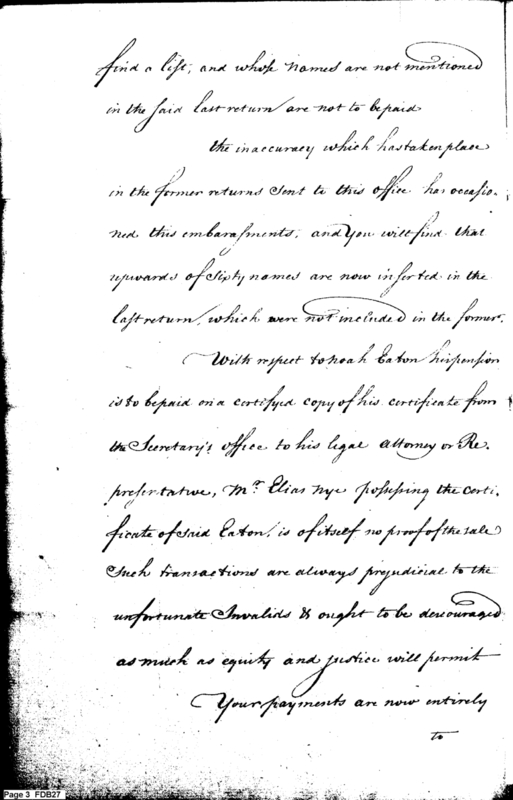 find a list, and whose names are not mentioned
in the said last return are not to be paid
the inaccuracy which has taken place
in the former returns sent to this office has occasio-
ned this embarassments, and You will find that
upwards of sixty names are now inserted in the
last return, which were not included in the former.
With respect to noah Eaton his pension
is to be paid on a certifyd copy of his certificate from
the Secretary's office to his legal attorney or Re-
presertative, Mr. Elias nye possessing the certi-
ficate of said Eaton, is of itself no proof of the sale
Such transactions are always prejudicial to the
unfortunate Invalids & ought to be descouraged
as much as equity and justice will permit
Your payments are now entirely
to
Page 3 FDB27